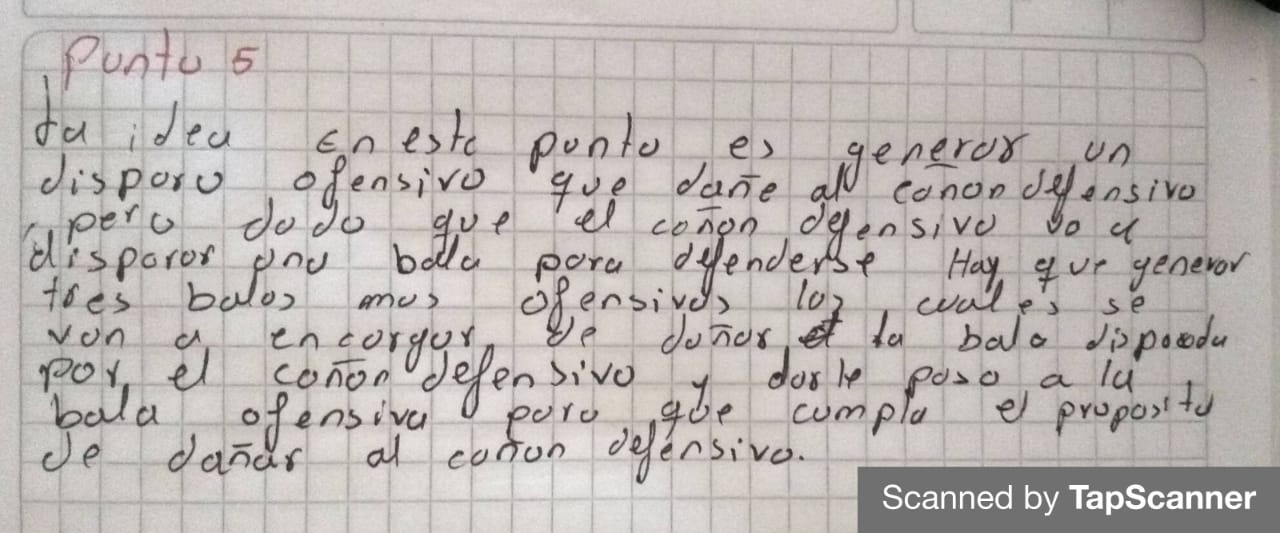 Punto 5
La idea en este punto es generar un
disparo ofensivo que dañe al cañon defensivo
pero dado que el cañon defensivo va a
disparar una bala para defenderse Hay que generar
tres balas mas ofensivas las cuales se
van a encargar de dañar la bala
por el cañon defensivo y darle paso a la
bala ofensiva para que cumpla el proposito
de dañar al cañon defensivo.
Scanned by TapScanner